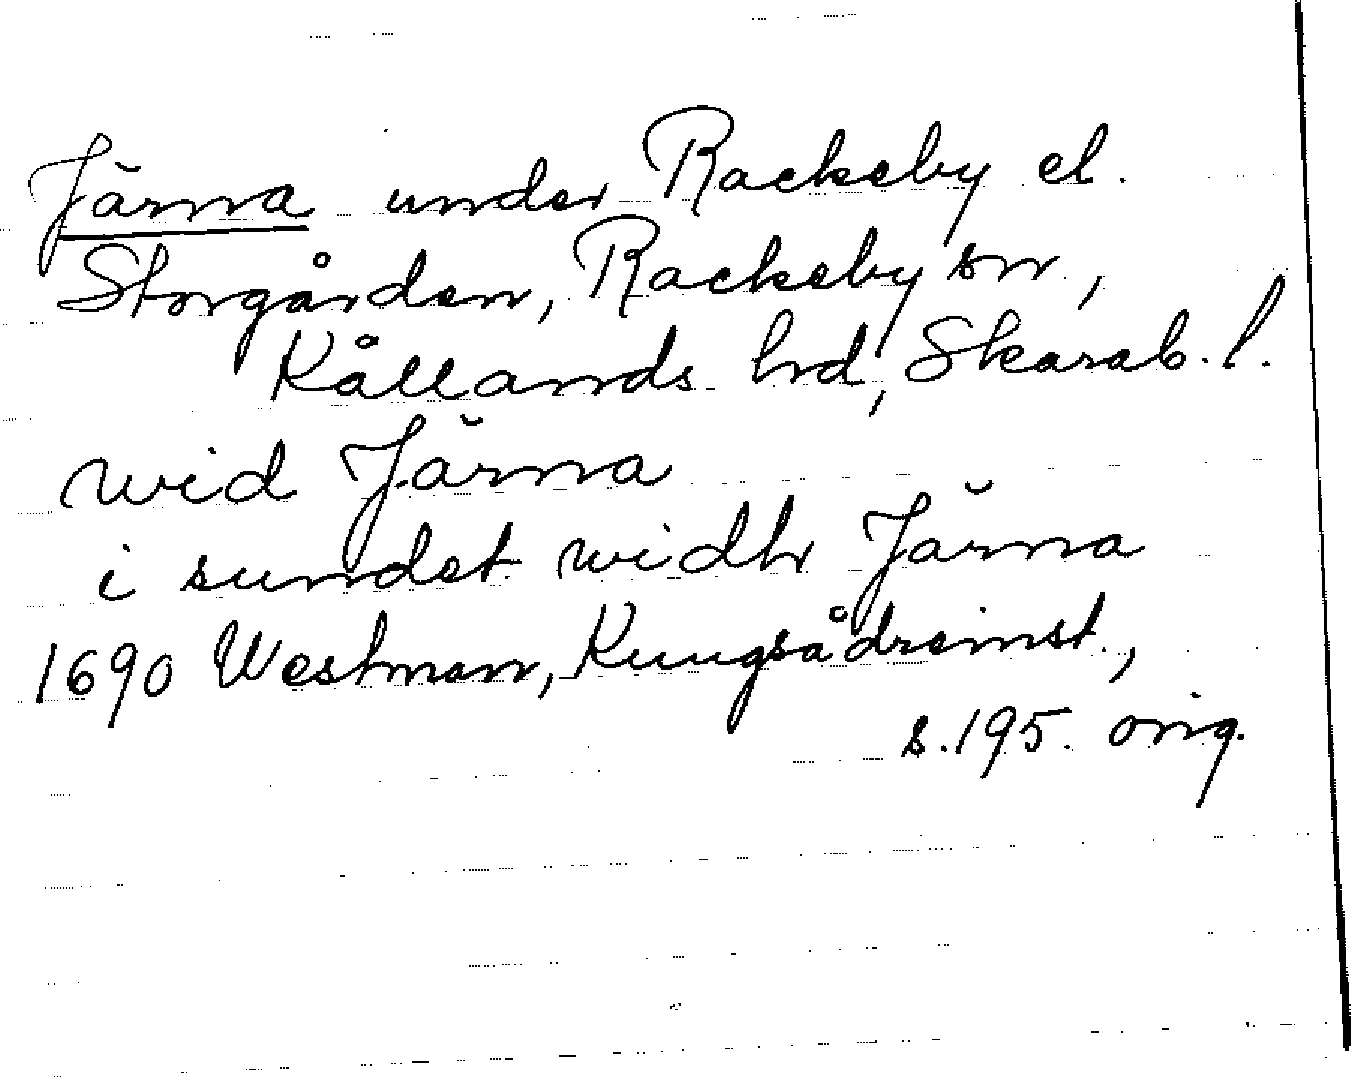 Järna under Rackeby el.
Storgården, Rackeby sn,
Kållands hd, Skarab. l.
wid Järna
i sundet widh Järna
1690 Westman, Kungsådreinst.,
s. 195. orig.